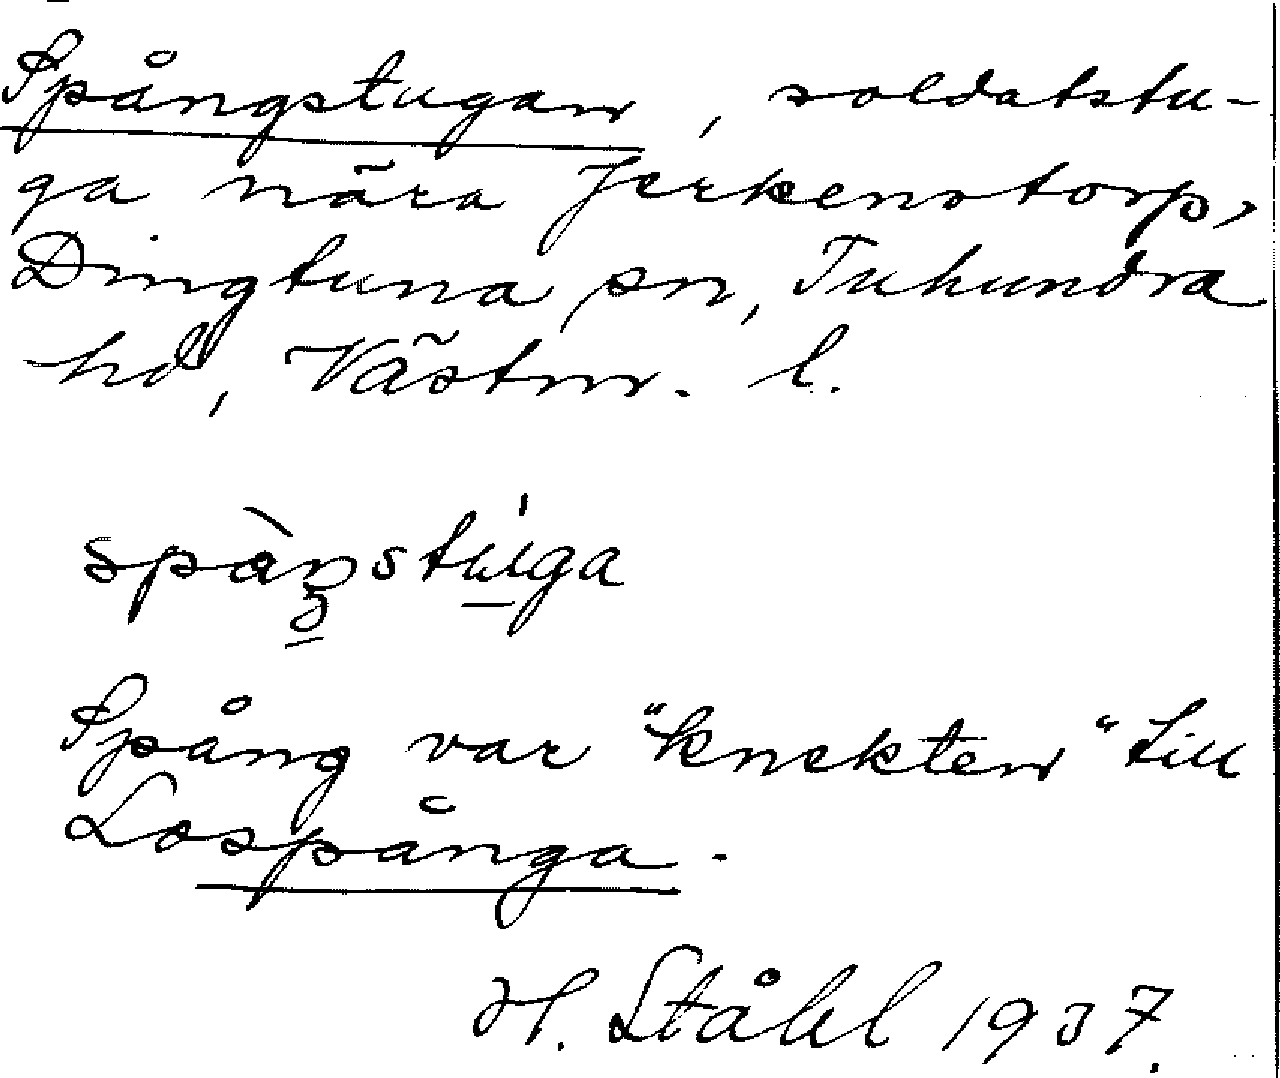 Spångstugan, soldatstu-
ga nära Jerkenstorp,
Dingtuna sn, Tuhundra
hd, Västm. l.
spàŋstúga
Spång var "knekten" till
Lospånga.
H. Ståhl 1937.